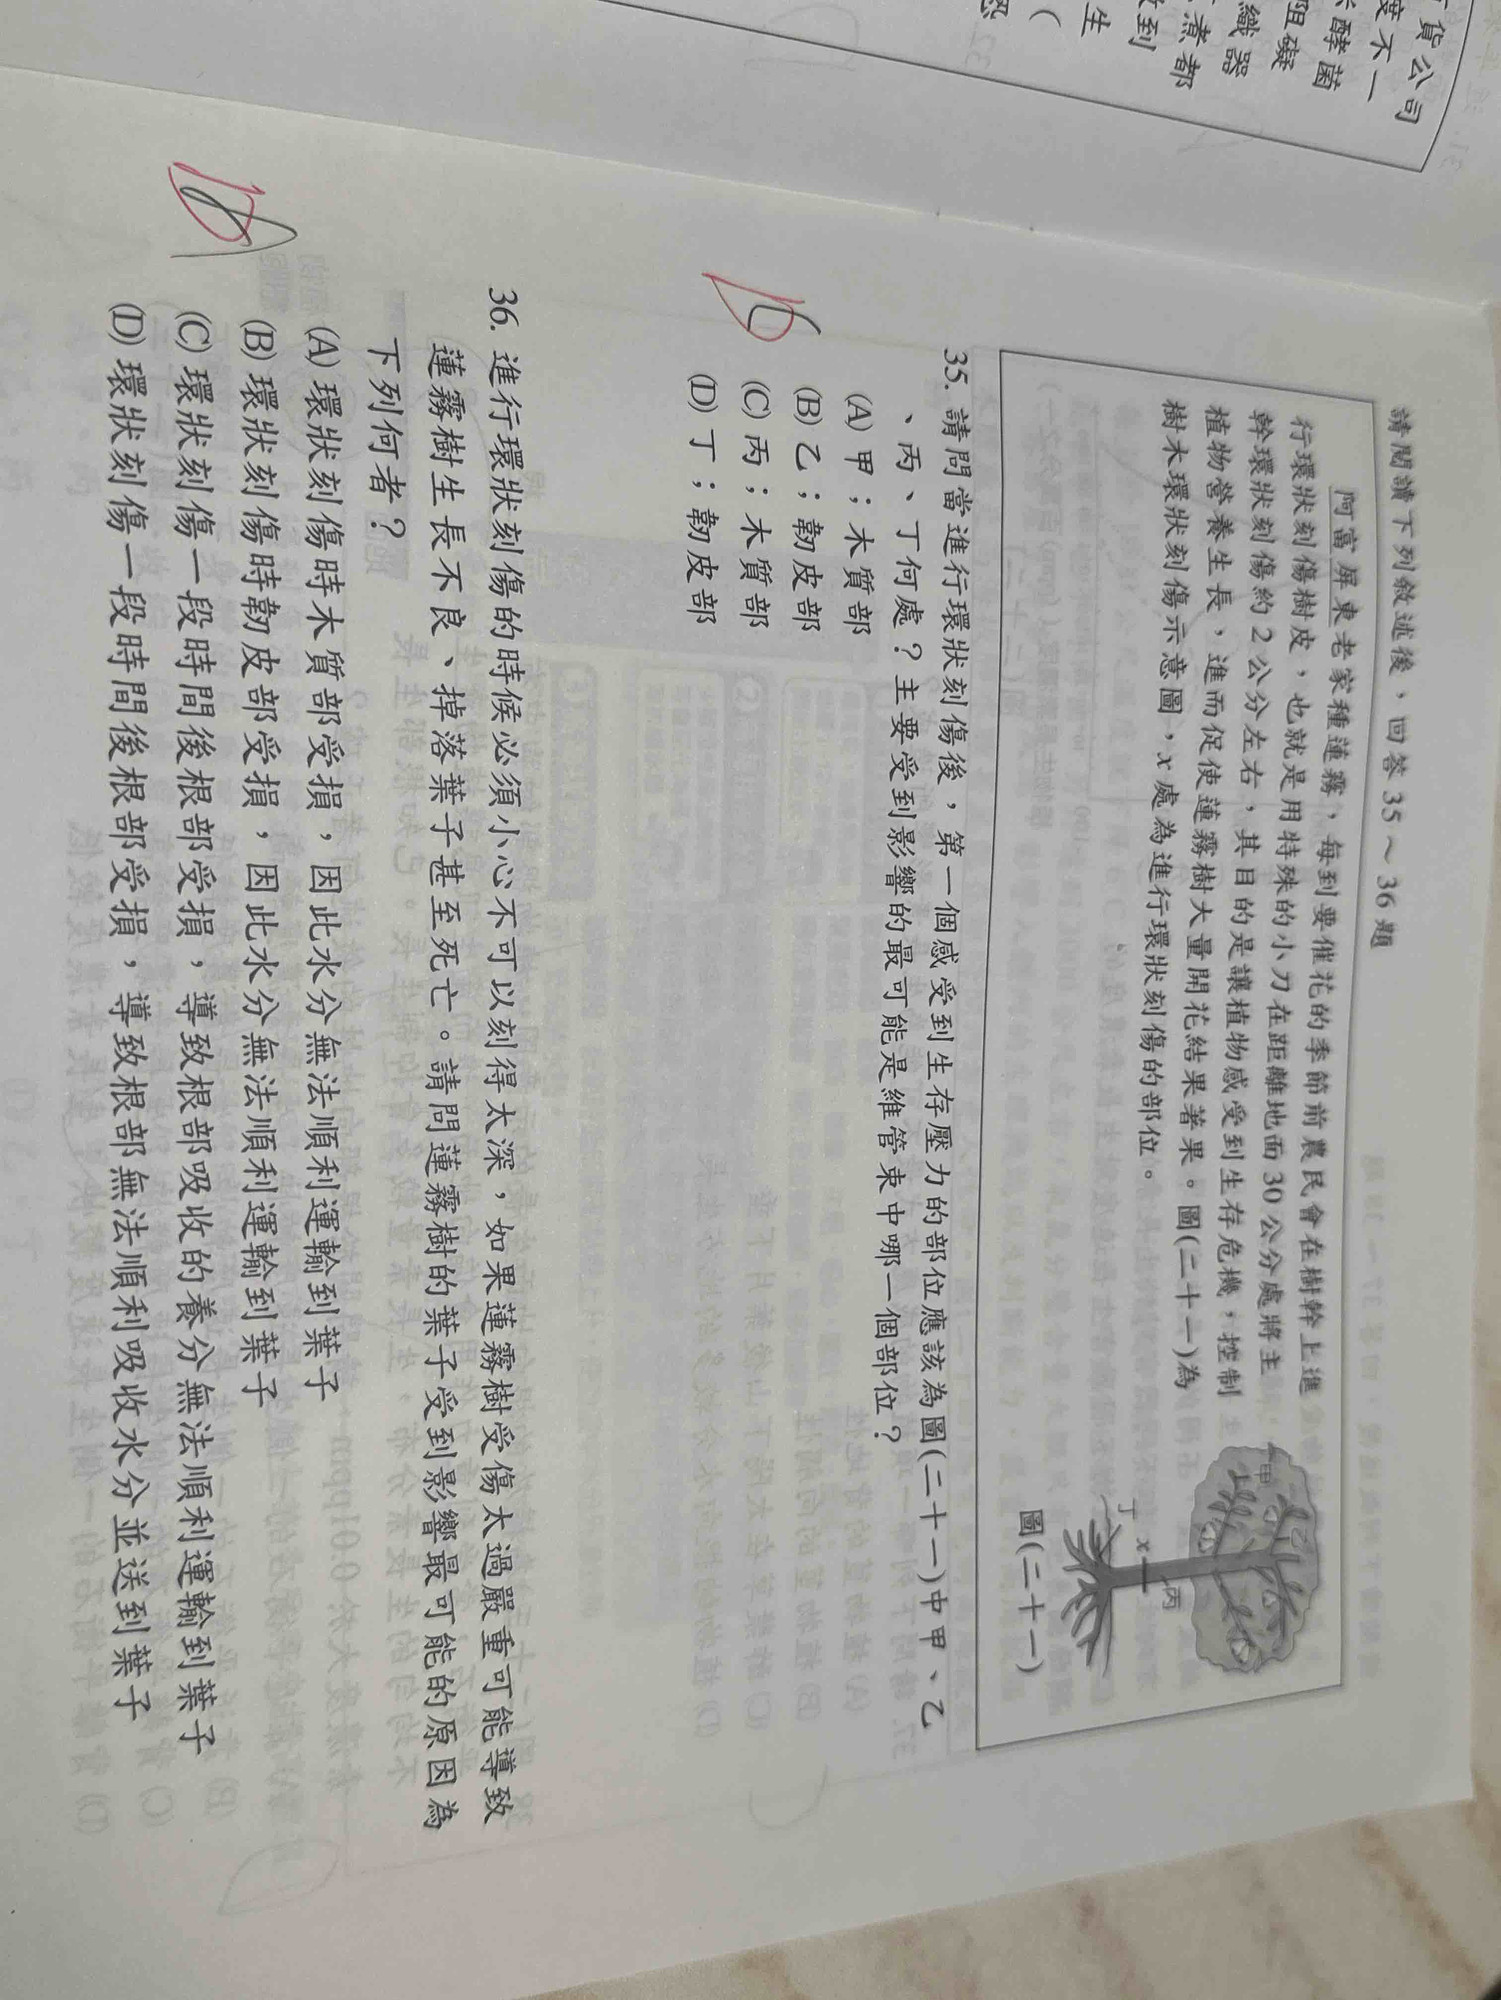 貨公司
度不一
酵菌
阻礙
織器
煮都
到
生
(
請閱讀下列敘述後，回答35～36題
阿富屏東老家種蓮霧，每到要催花的季節前農民會在樹幹上進
行環狀刻傷樹皮，也就是用特殊的小刀在距離地面30公分處將主
幹環狀刻傷約2公分左右，其目的是讓植物感受到生存危機，控制
植物營養生長，進而促使蓮霧樹大量開花結果著果。圖(二十一)為
樹木環狀刻傷示意圖，x處為進行環狀刻傷的部位。
甲
乙
丙
x
丁
圖(二十一)
35. 請問當進行環狀刻傷後，第一個感受到生存壓力的部位應該為圖(二十一)中甲、乙
、丙、丁何處？主要受到影響的最可能是維管束中哪一個部位？
(A) 甲；木質部
(B) 乙；韌皮部
(C) 丙；木質部
(D) 丁；韌皮部
36. 進行環狀刻傷的時候必須小心不可以刻得太深，如果蓮霧樹受傷太過嚴重可能導致
蓮霧樹生長不良、掉落葉子甚至死亡。請問蓮霧樹的葉子受到影響最可能的原因為
下列何者？
(A) 環狀刻傷時木質部受損，因此水分無法順利運輸到葉子
(B) 環狀刻傷時韌皮部受損，因此水分無法順利運輸到葉子
(C) 環狀刻傷一段時間後根部受損，導致根部吸收的養分無法順利運輸到葉子
(D) 環狀刻傷一段時間後根部受損，導致根部無法順利吸收水分並送到葉子